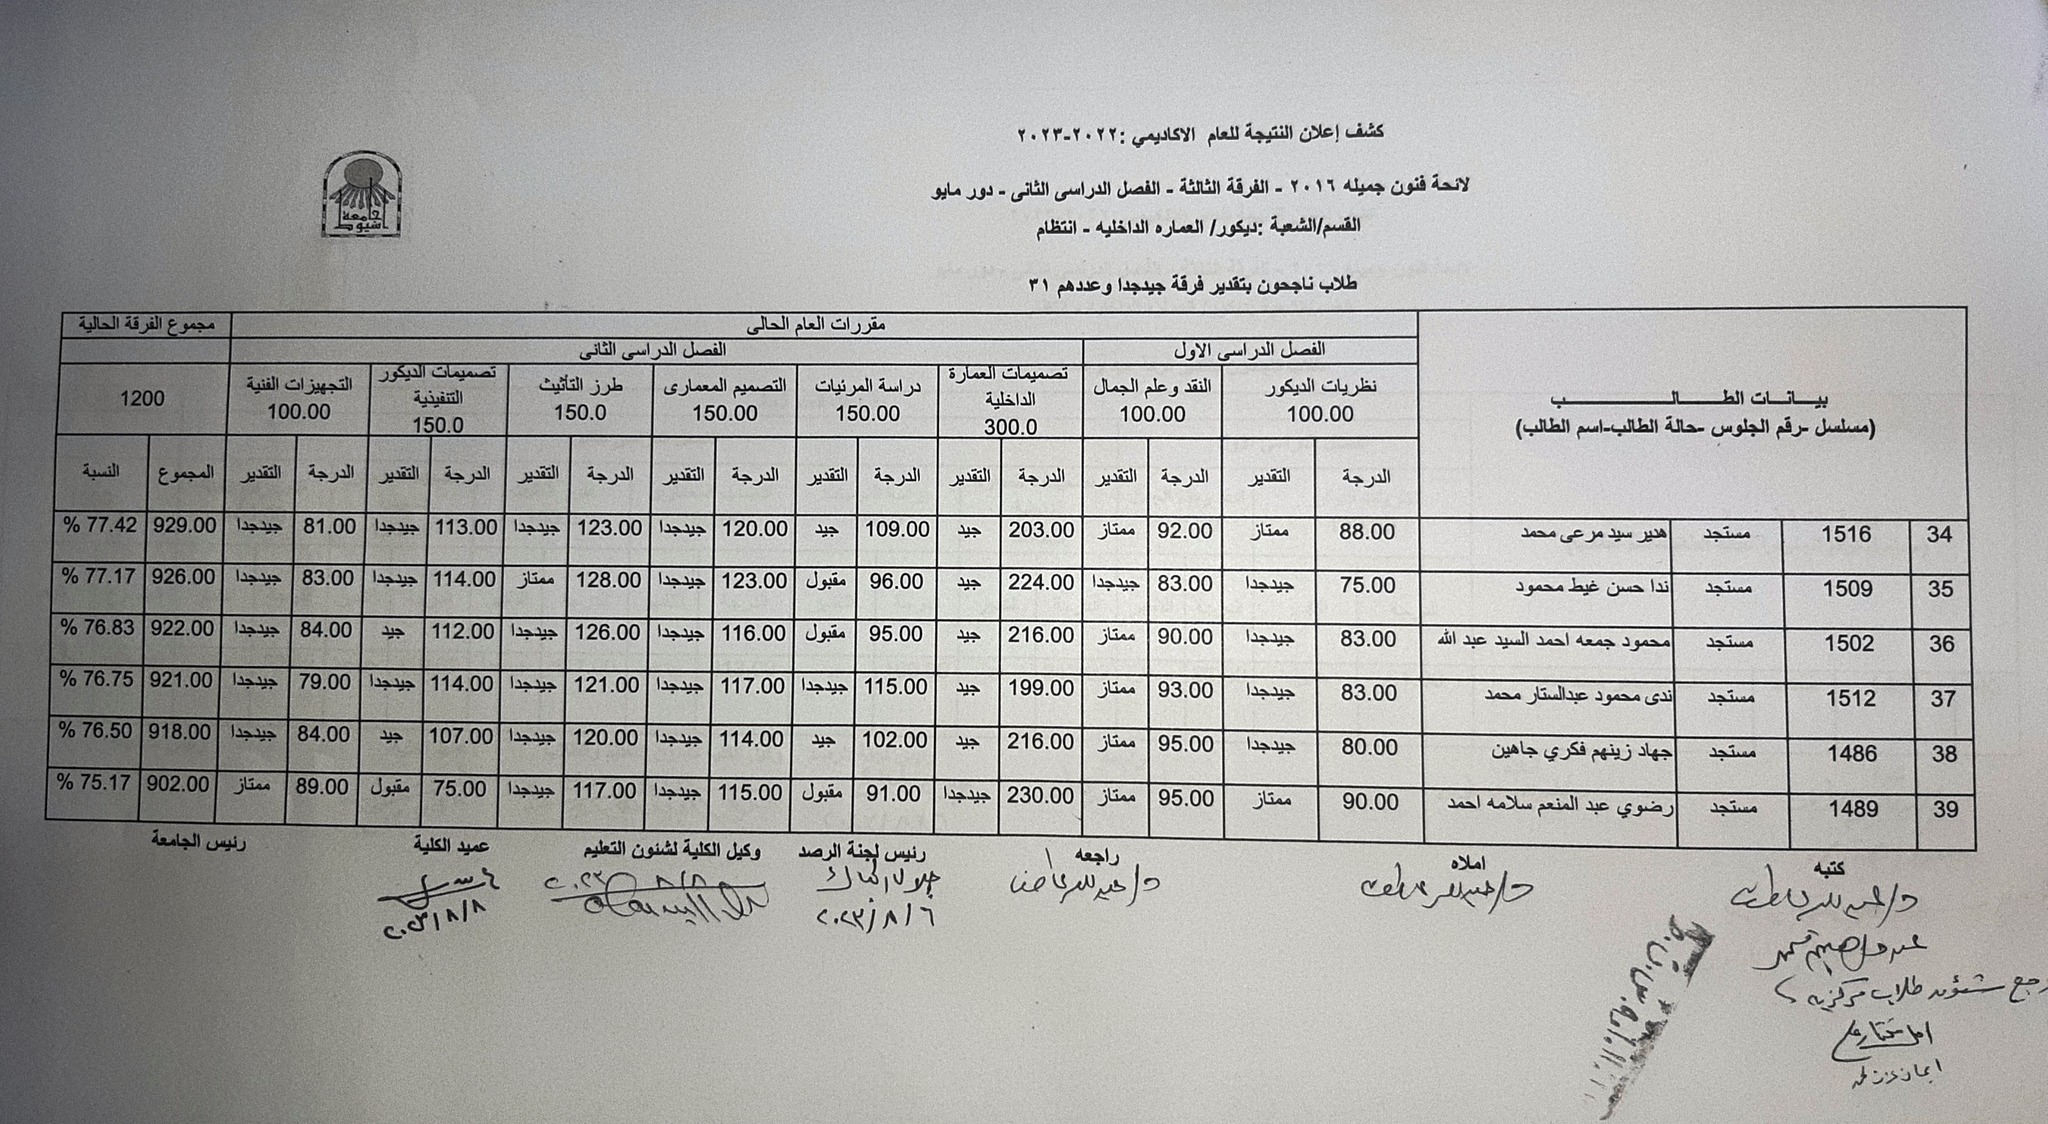 كشف إعلان النتيجة للعام الاكاديمي :٢٠٢٢-٢٠٢٣
جامعة أسيوط
لائحة فنون جميله ٢٠١٦ - الفرقة الثالثة - الفصل الدراسى الثانى - دور مايو
القسم/الشعبة :ديكور/ العماره الداخليه - انتظام
طلاب ناجحون بتقدير فرقة جيدجدا وعددهم ٣١
مقررات العام الحالى مجموع الفرقة الحالية
الفصل الدراسى الاول الفصل الدراسى الثانى
بيانات الطالب
(مسلسل -رقم الجلوس -حالة الطالب-اسم الطالب)
نظريات الديكور 100.00
النقد وعلم الجمال 100.00
تصميمات العمارة الداخلية 300.0
دراسة المرئيات 150.00
التصميم المعمارى 150.00
طرز التأثيث 150.0
تصميمات الديكور التنفيذية 150.0
التجهيزات الفنية 100.00
1200
الدرجة التقدير الدرجة التقدير الدرجة التقدير الدرجة التقدير الدرجة التقدير الدرجة التقدير الدرجة التقدير الدرجة التقدير المجموع النسبة
34 1516 مستجد هدير سيد مرعى محمد 88.00 ممتاز 92.00 ممتاز 203.00 جيد 109.00 جيد 120.00 جيدجدا 123.00 جيدجدا 113.00 جيدجدا 81.00 جيدجدا 929.00 77.42 %
35 1509 مستجد ندا حسن غيط محمود 75.00 جيدجدا 83.00 جيدجدا 224.00 جيد 96.00 مقبول 123.00 جيدجدا 128.00 ممتاز 114.00 جيدجدا 83.00 جيدجدا 926.00 77.17 %
36 1502 مستجد محمود جمعه احمد السيد عبد الله 83.00 جيدجدا 90.00 ممتاز 216.00 جيد 95.00 مقبول 116.00 جيدجدا 126.00 جيدجدا 112.00 جيد 84.00 جيدجدا 922.00 76.83 %
37 1512 مستجد ندى محمود عبدالستار محمد 83.00 جيدجدا 93.00 ممتاز 199.00 جيد 115.00 جيدجدا 117.00 جيدجدا 121.00 جيدجدا 114.00 جيدجدا 79.00 جيدجدا 921.00 76.75 %
38 1486 مستجد جهاد زينهم فكري جاهين 80.00 جيدجدا 95.00 ممتاز 216.00 جيد 102.00 جيد 114.00 جيدجدا 120.00 جيدجدا 107.00 جيد 84.00 جيدجدا 918.00 76.50 %
39 1489 مستجد رضوي عبد المنعم سلامه احمد 90.00 ممتاز 95.00 ممتاز 230.00 جيدجدا 91.00 مقبول 115.00 جيدجدا 117.00 جيدجدا 75.00 مقبول 89.00 ممتاز 902.00 75.17 %
كتبه املاه راجعه رئيس لجنة الرصد وكيل الكلية لشئون التعليم عميد الكلية رئيس الجامعة
٢٠٢٣/٨/٦
٢٠٢٣/٨/٨
شئون طلاب مركزية